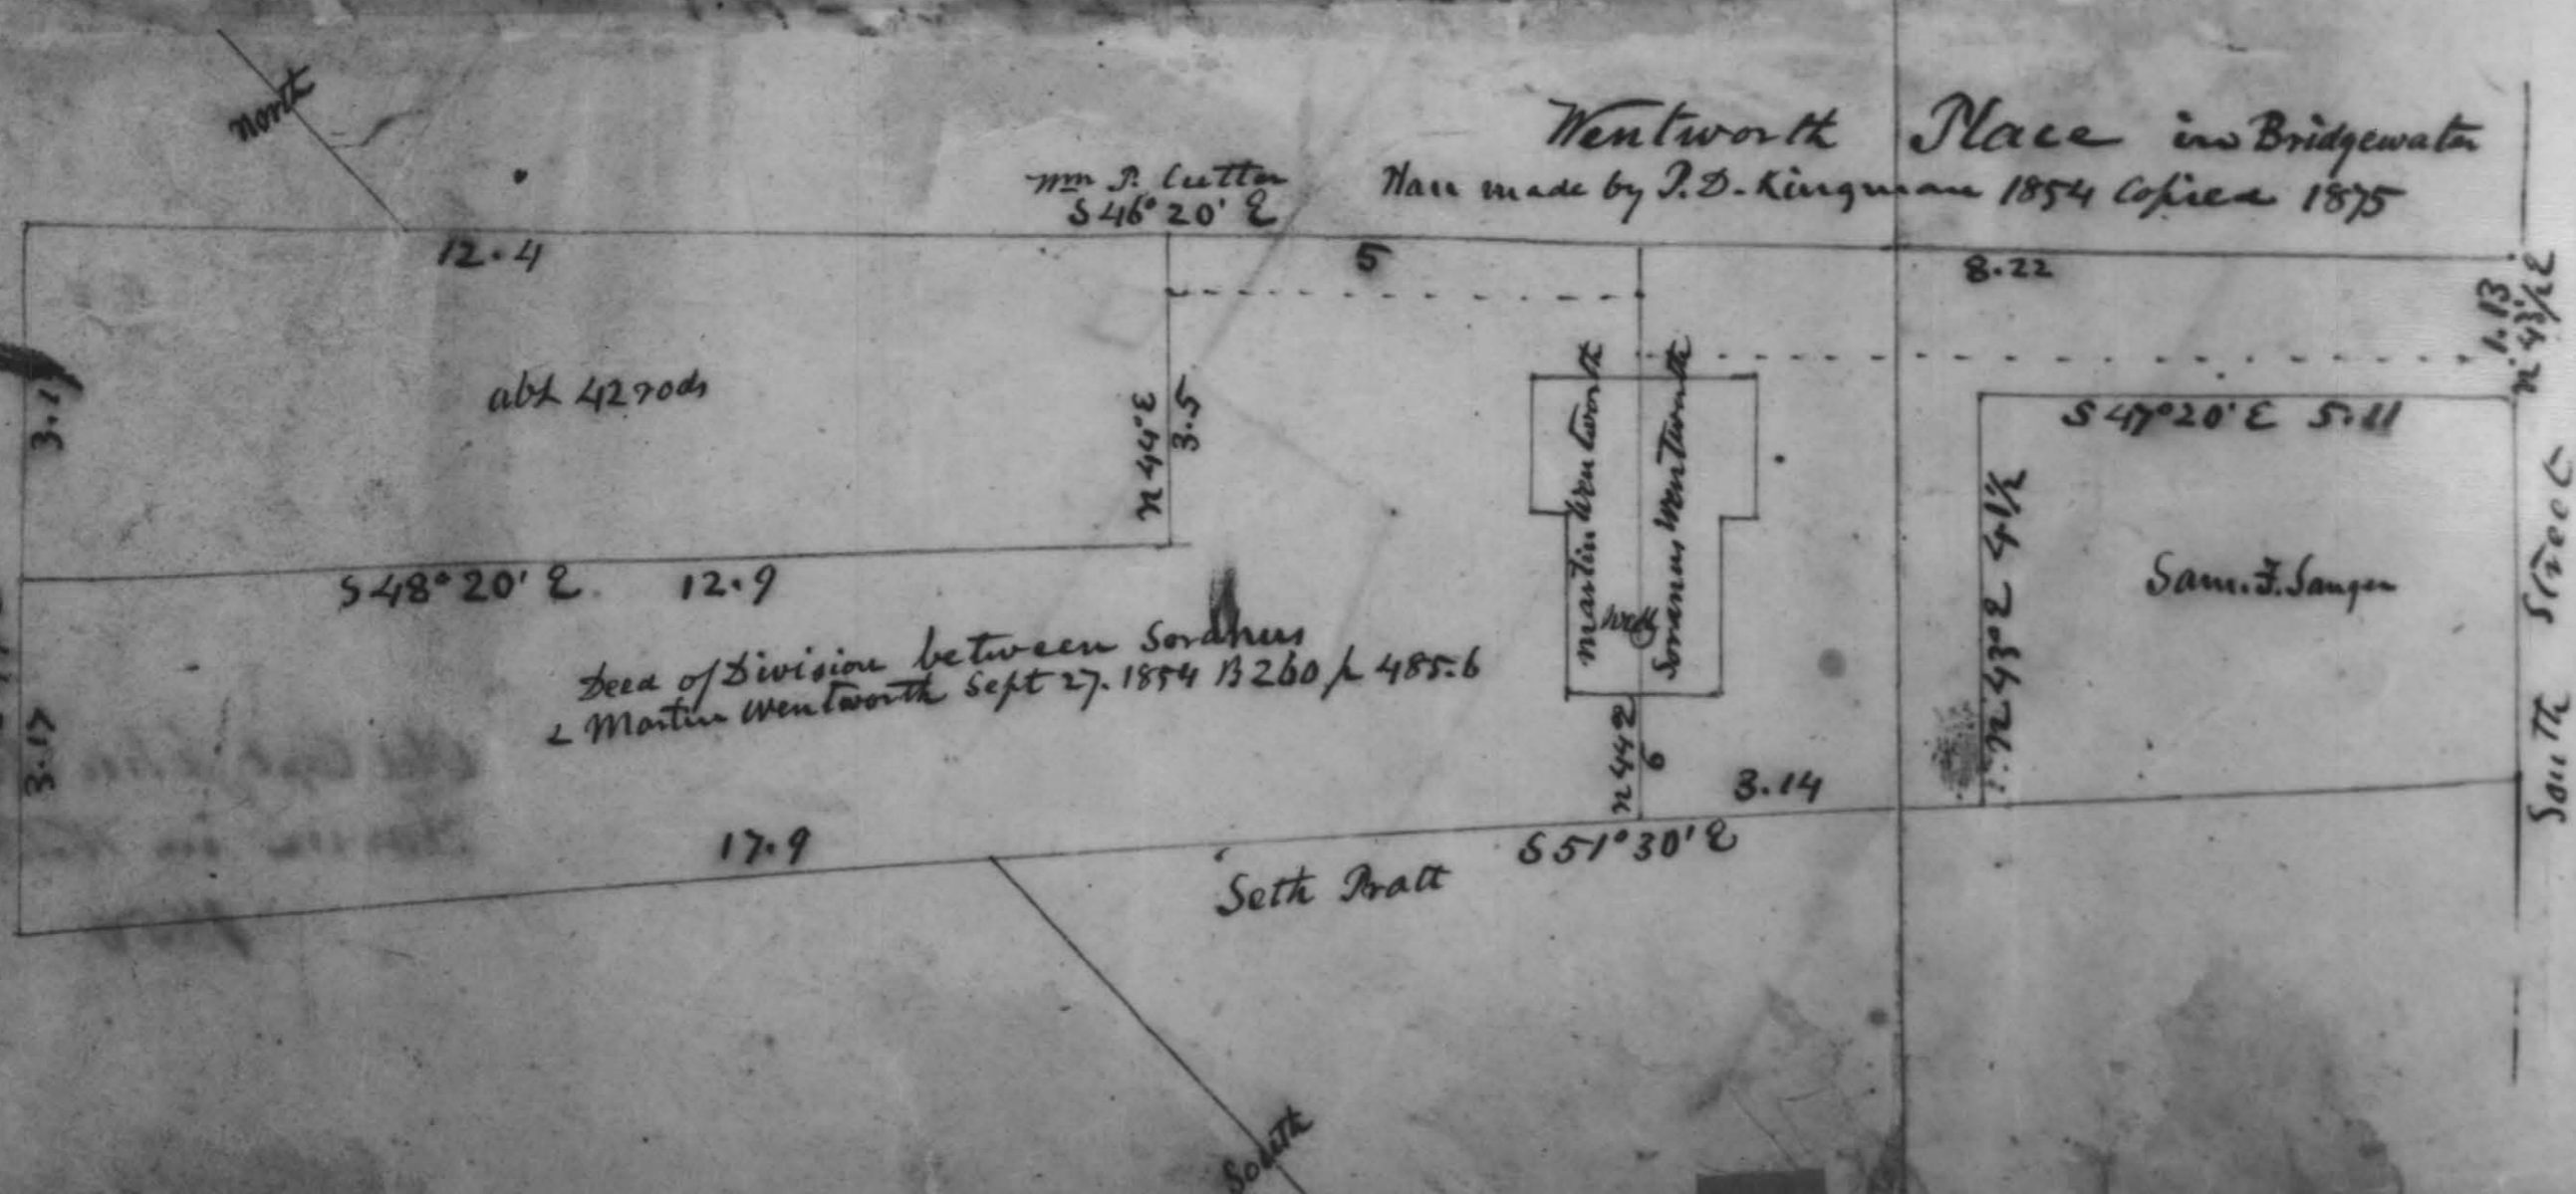 North
Wentworth Place in Bridgewater
Plan made by P. D. Kingman 1854 Copied 1875
Wm P. Cutter
S 46° 20' E
12.4
5
8.22
1.13
N 43 1/2 E
3.1
abt 42 rods
N 44° E
3.5
Martin Wentworth
Soranus Wentworth
S 47° 20' E 5.11
N 43° E 4 1/2
Sam. F. Sanger
South Street
S 48° 20' E. 12.9
Deed of Division between Soranus
& Martin Wentworth Sept 27. 1854 B 260 p 485.6
Well
N 44 E
6
3.17
3.14
17.9
S 51° 30' E
Seth Pratt
South